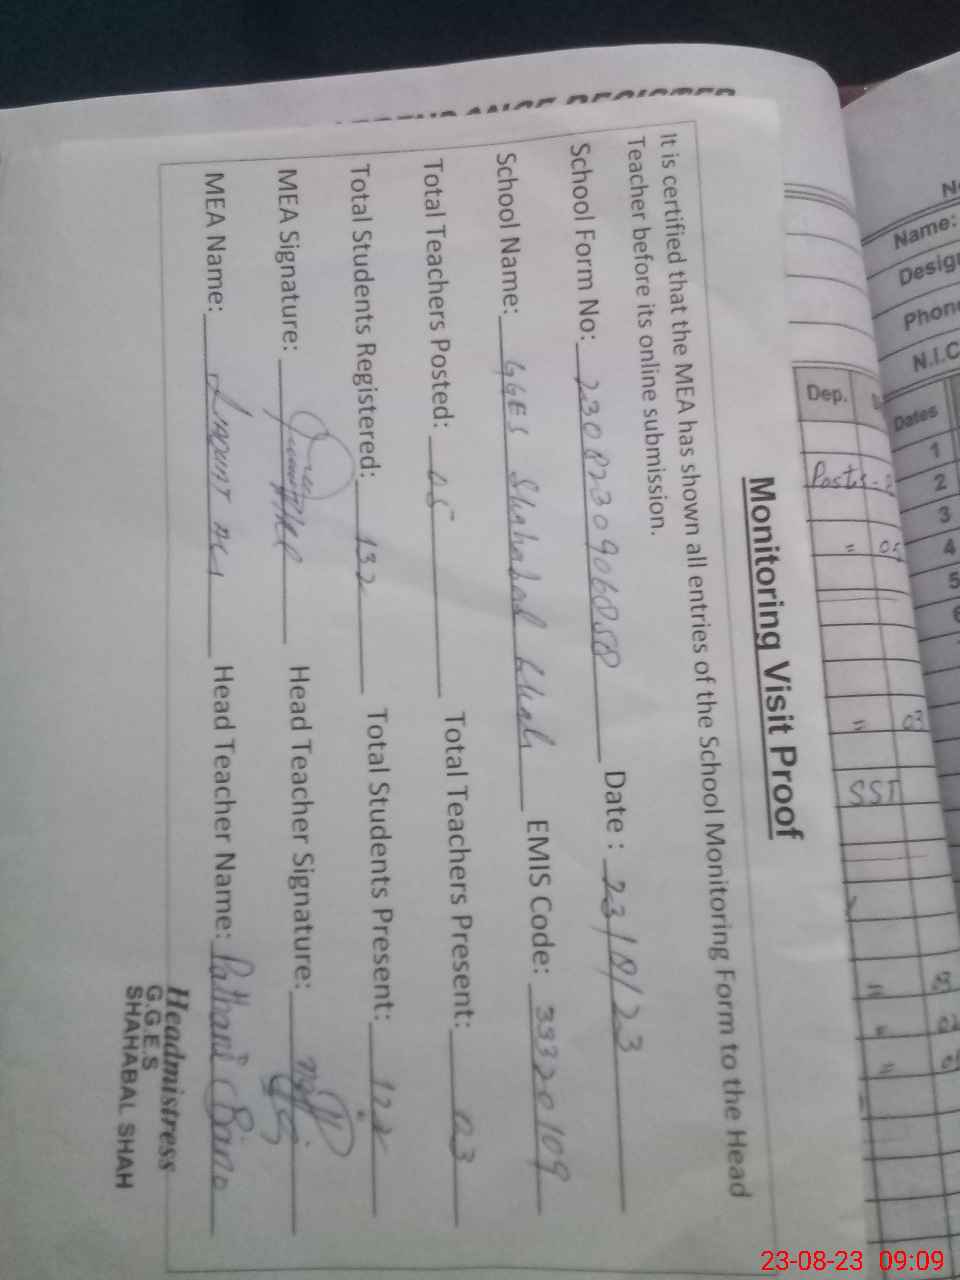 Monitoring Visit Proof
It is certified that the MEA has shown all entries of the School Monitoring Form to the Head
Teacher before its online submission.
School Form No: 23082309060858 Date : 23/8/23
School Name: GGES Shahabal Shah EMIS Code: 33320109
Total Teachers Posted: 05 Total Teachers Present: 03
Total Students Registered: 132 Total Students Present: 122
MEA Signature: Head Teacher Signature:
MEA Name: Head Teacher Name: Pathani Bano
Headmistress
G.G.E.S
SHAHABAL SHAH
Name:
N.I.C
Dep.
Dates
1
2
3
4
5
6
Posts
" 05
" 03
SST
"
"
"
23-08-23 09:09